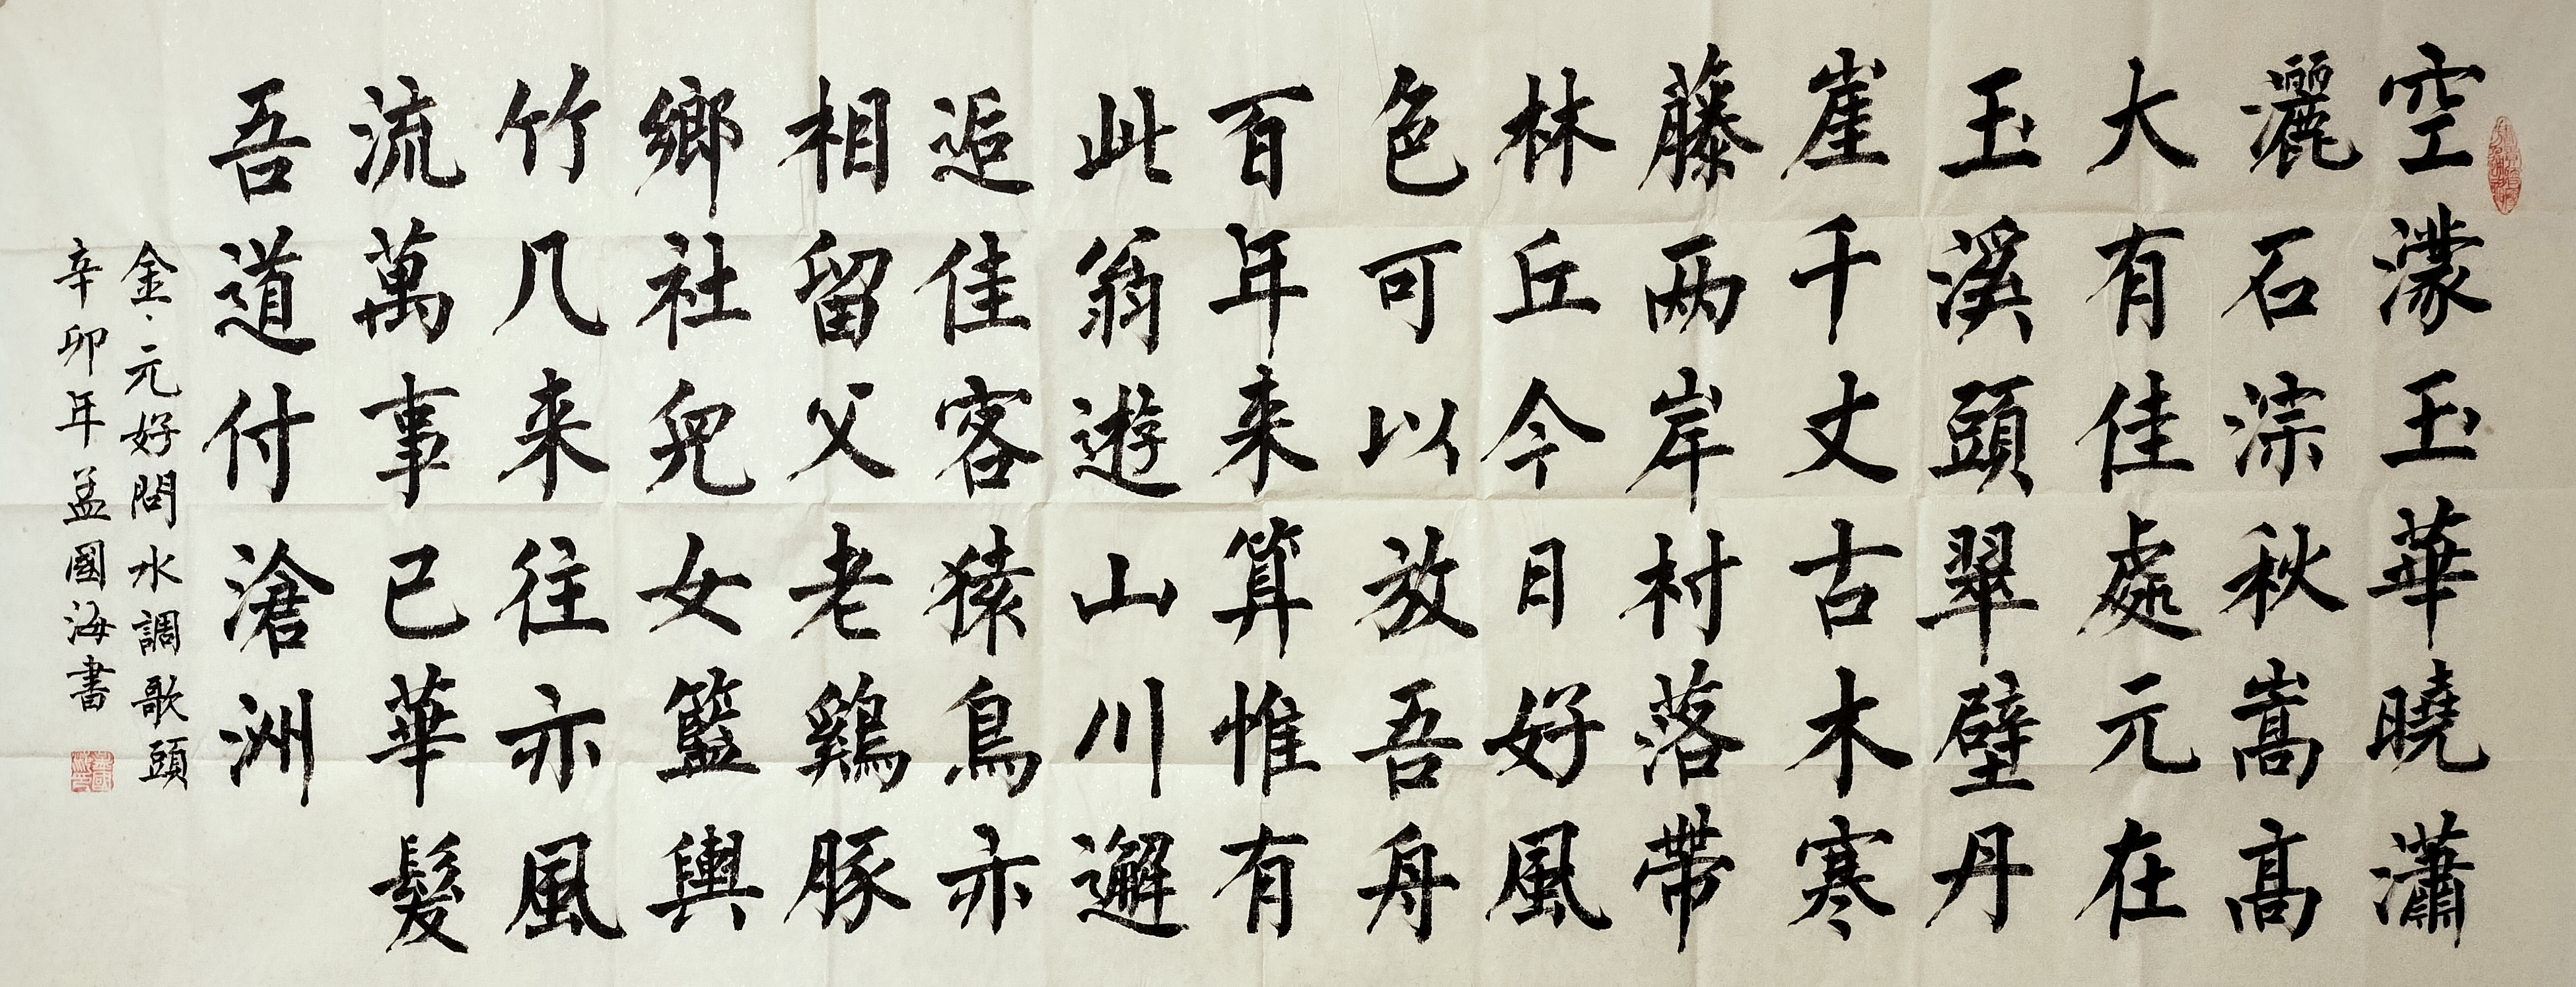 空濛玉華曉瀟
灑石淙秋嵩高
大有佳處元在
玉溪頭翠壁丹
崖千丈古木寒
藤两岸村落帶
林丘今日好風
色可以放吾舟
百年来算惟有
此翁遊山川邂
逅佳客猿鳥亦
相留父老鷄豚
鄉社兒女籃輿
竹几来往亦風
流萬事已華髮
吾道付滄洲
金元好問水調歌頭
辛卯年孟國海書